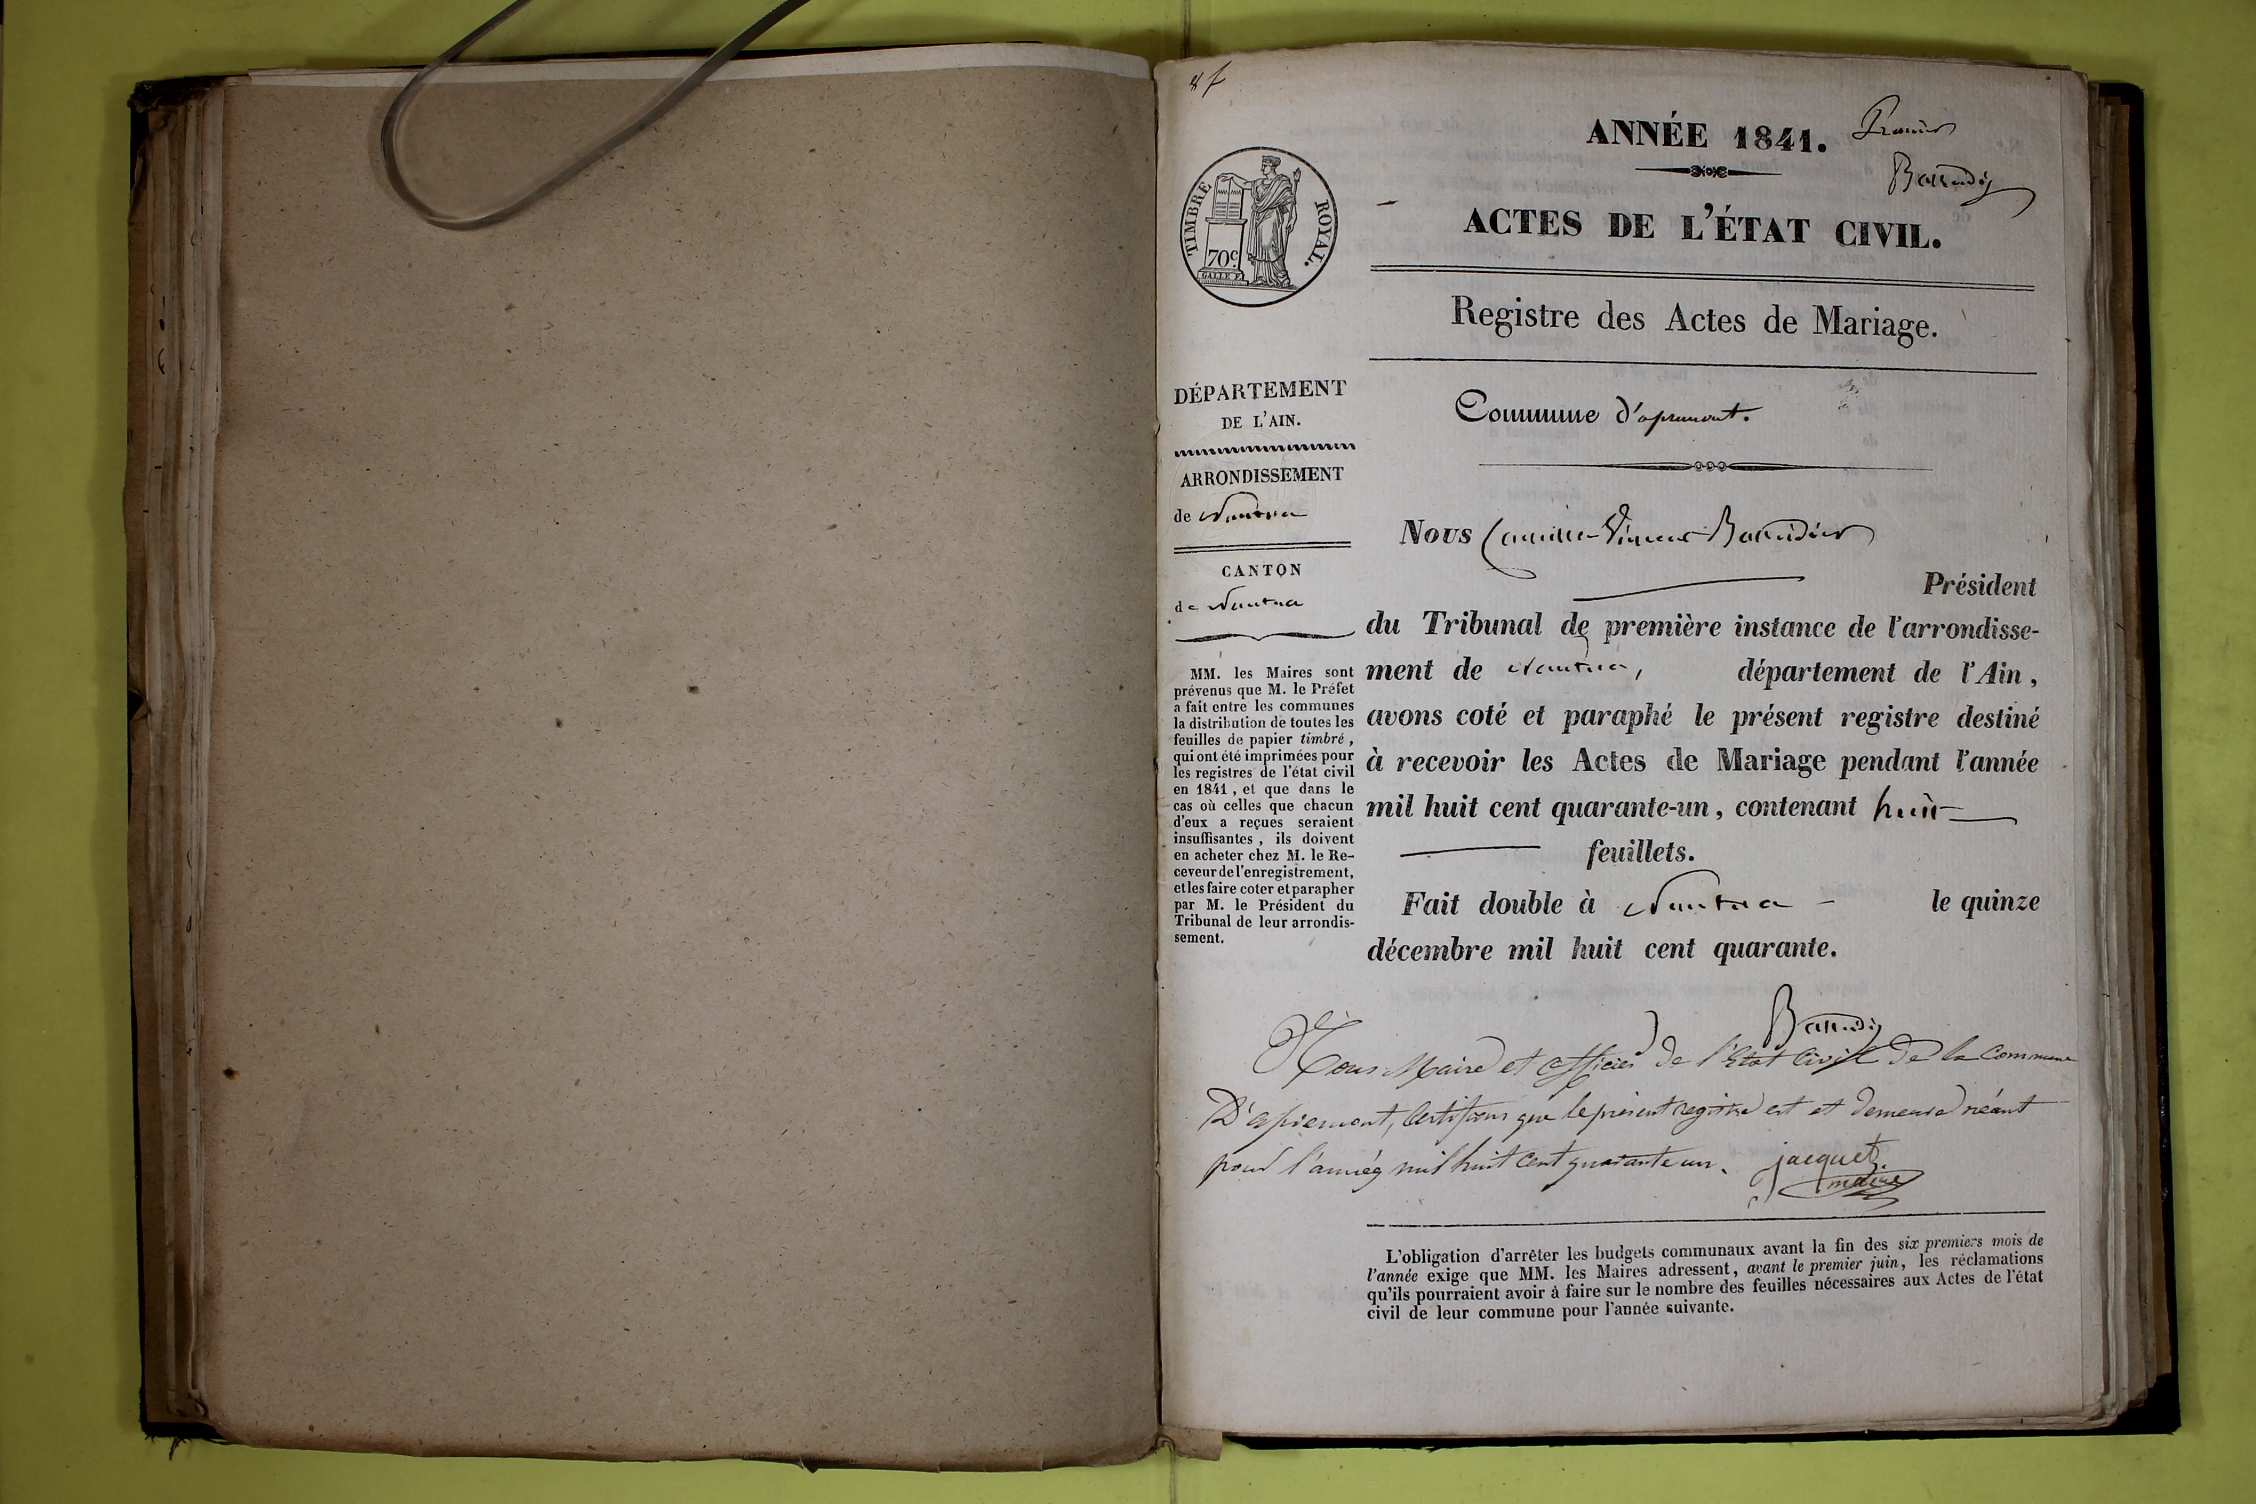 8 f
ANNÉE 1841. Premier
Baudier
TIMBRE ROYAL.
70c
GALLE F.
ACTES DE L'ÉTAT CIVIL.
Registre des Actes de Mariage.
DÉPARTEMENT
DE L'AIN.
ARRONDISSEMENT
de Nantua
CANTON
de Nantua
MM. les Maires sont
prévenus que M. le Préfet
a fait entre les communes
la distribution de toutes les
feuilles de papier timbré,
qui ont été imprimées pour
les registres de l'état civil
en 1841, et que dans le
cas où celles que chacun
d'eux a reçues seraient
insuffisantes, ils doivent
en acheter chez M. le Re-
ceveur de l'enregistrement,
et les faire coter et parapher
par M. le Président du
Tribunal de leur arrondis-
sement.
Commune d'apremont.
Nous Camille
Président
du Tribunal de première instance de l'arrondisse-
ment de Nantua, département de l'Ain,
avons coté et paraphé le présent registre destiné
à recevoir les Actes de Mariage pendant l'année
mil huit cent quarante-un, contenant huit
feuillets.
Fait double à Nantua le quinze
décembre mil huit cent quarante.
Nous Maire et officier de l'Etat Civil de la Commune
D'apremont, Certifions que le présent registre est et demeure néant
pour l'année mil huit cent quarante un. jacquet
maire
L'obligation d'arrêter les budgets communaux avant la fin des six premiers mois de
l'année exige que MM. les Maires adressent, avant le premier juin, les réclamations
qu'ils pourraient avoir à faire sur le nombre des feuilles nécessaires aux Actes de l'état
civil de leur commune pour l'année suivante.